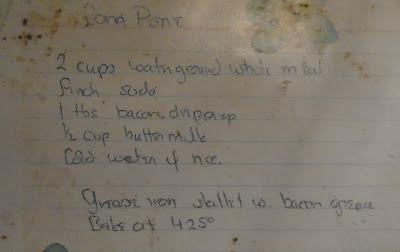 Corn Pone
2 cups waterground white meal
Pinch soda
1 tbs bacon drippings
½ cup buttermilk
Cold water if nec.
Grease iron skillet w. bacon grease
Bake at 425°